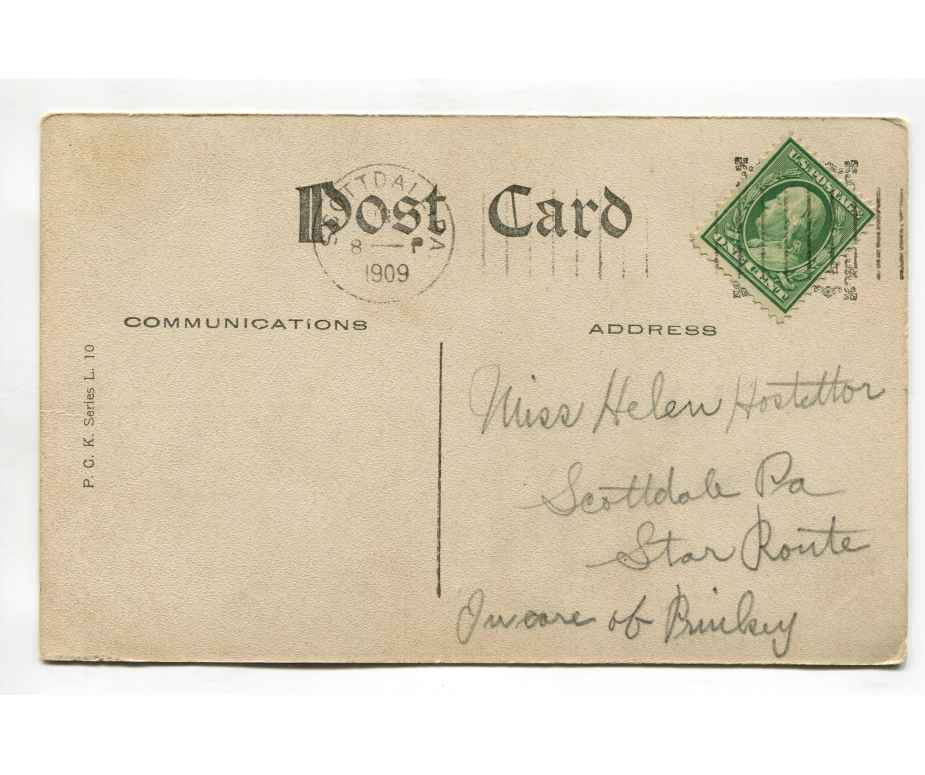 Post Card
SCOTTDALE PA
8 — P
1909
U.S. POSTAGE
COMMUNICATIONS
ADDRESS
P. C. K. Series L. 10
Miss Helen Hostettor
Scottdale Pa
Star Route
In care of